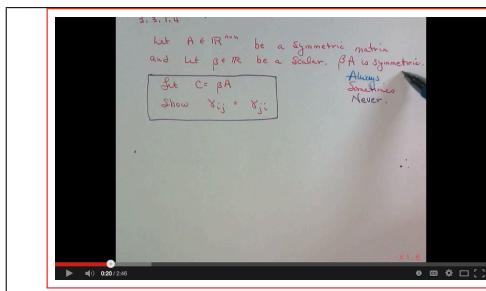 2.3.1.4
Let A ∈ ℝⁿˣⁿ be a symmetric matrix
and let β ∈ ℝ be a scalar. βA is symmetric.
Always
Sometimes
Never.
Let C = βA
Show γᵢⱼ = γⱼᵢ
0:20 / 2:46